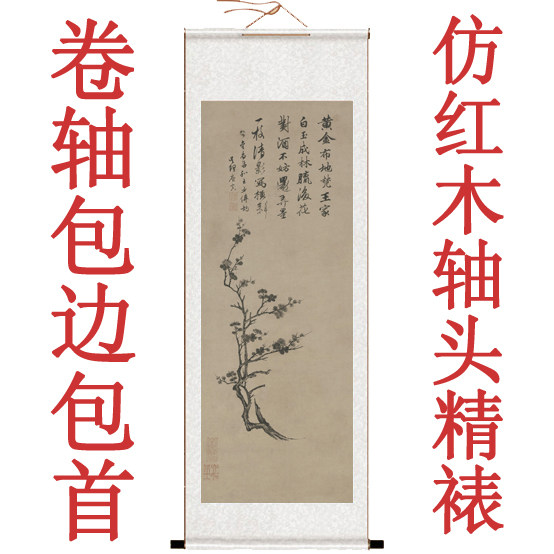 卷轴包边包首
仿红木轴头精裱
黃金布地梵王家
白玉成林臘後花
對酒不妨還弄墨
一枝清影寫橫斜